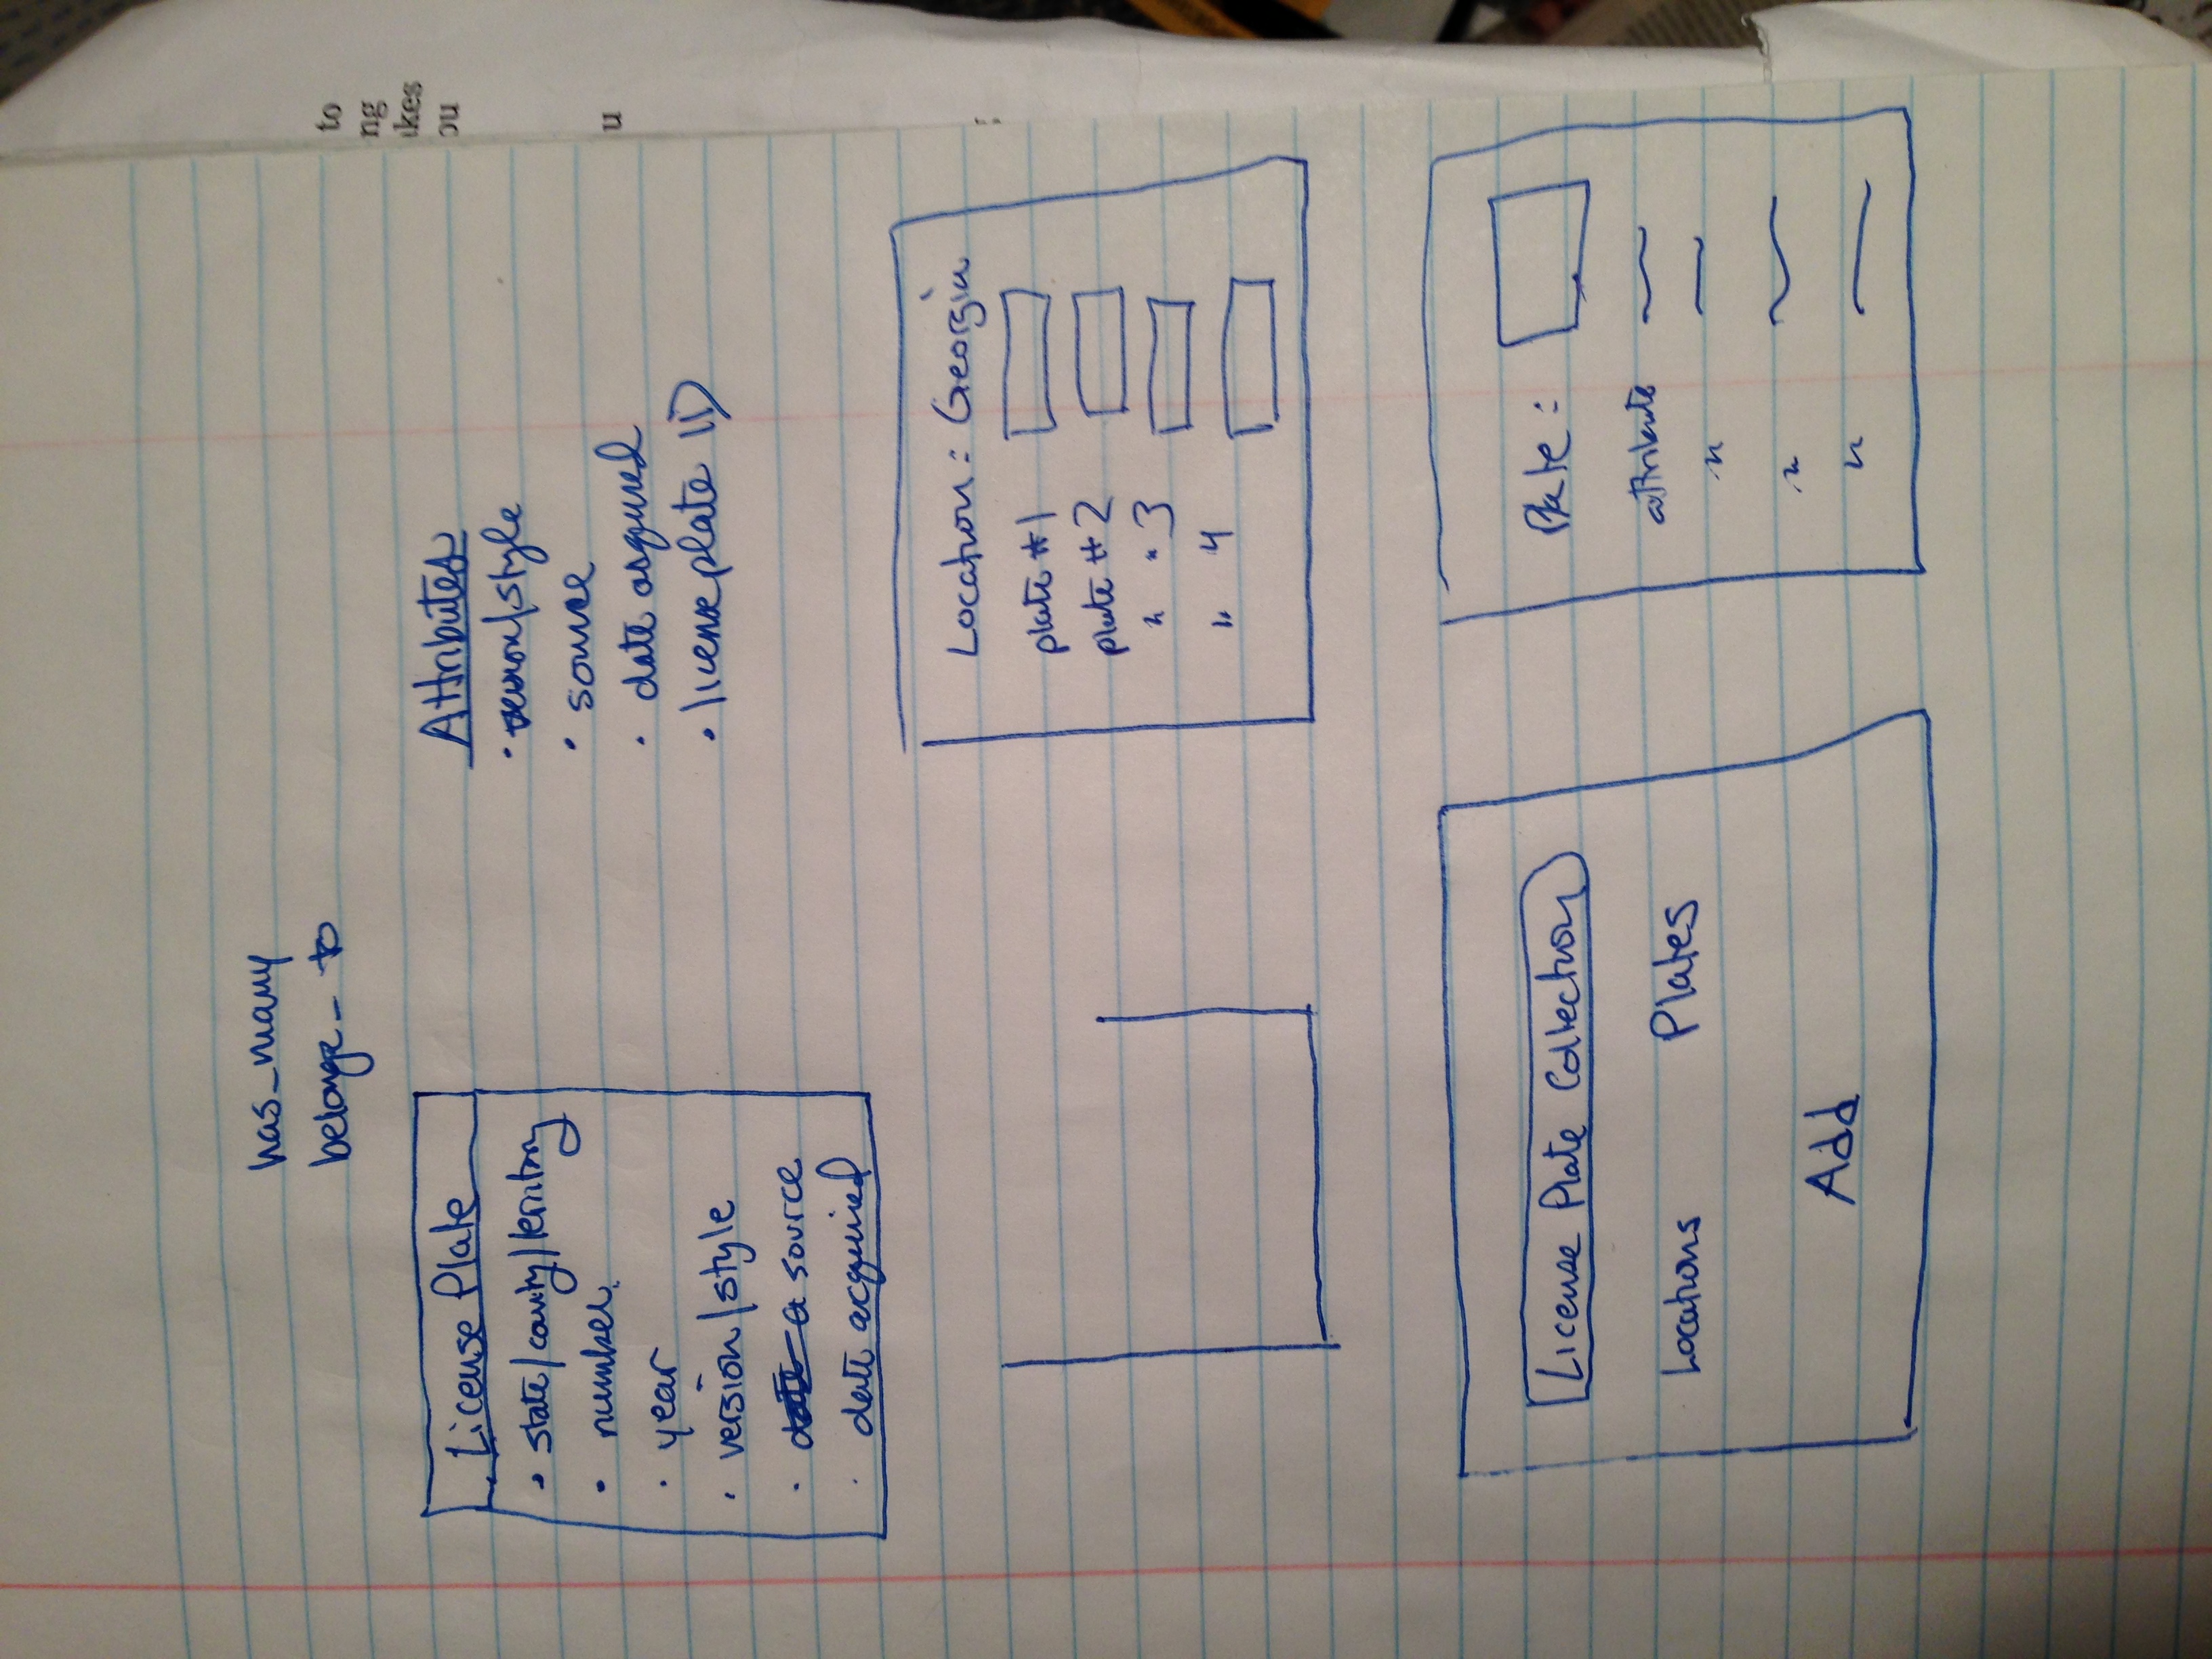 has_many
belongs_to
License Plate
• state/county/territory
• number
• year
• version/style
• source
• date acquired
Attributes
• version/style
• source
• date acquired
• license plate ID
Location: Georgia
plate #1
plate #2
" " 3
" 4
License Plate Collection
Locations Plates
Add
Plate:
attribute
"
"
"
to
ng
ikes
ou
u